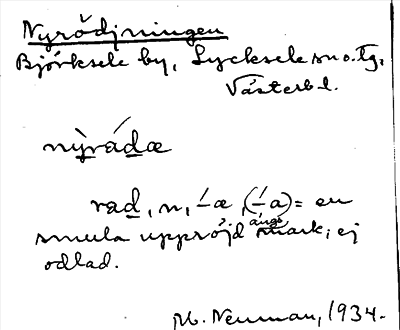 Nyrödjningen
Björksele by, Lycksele sn o. tg,
Västerb l.
nỳrádæ
rad, n, -́æ, (-́a) = en
smula uppröjd ängsmark; ej
odlad.
M. Neuman, 1934.